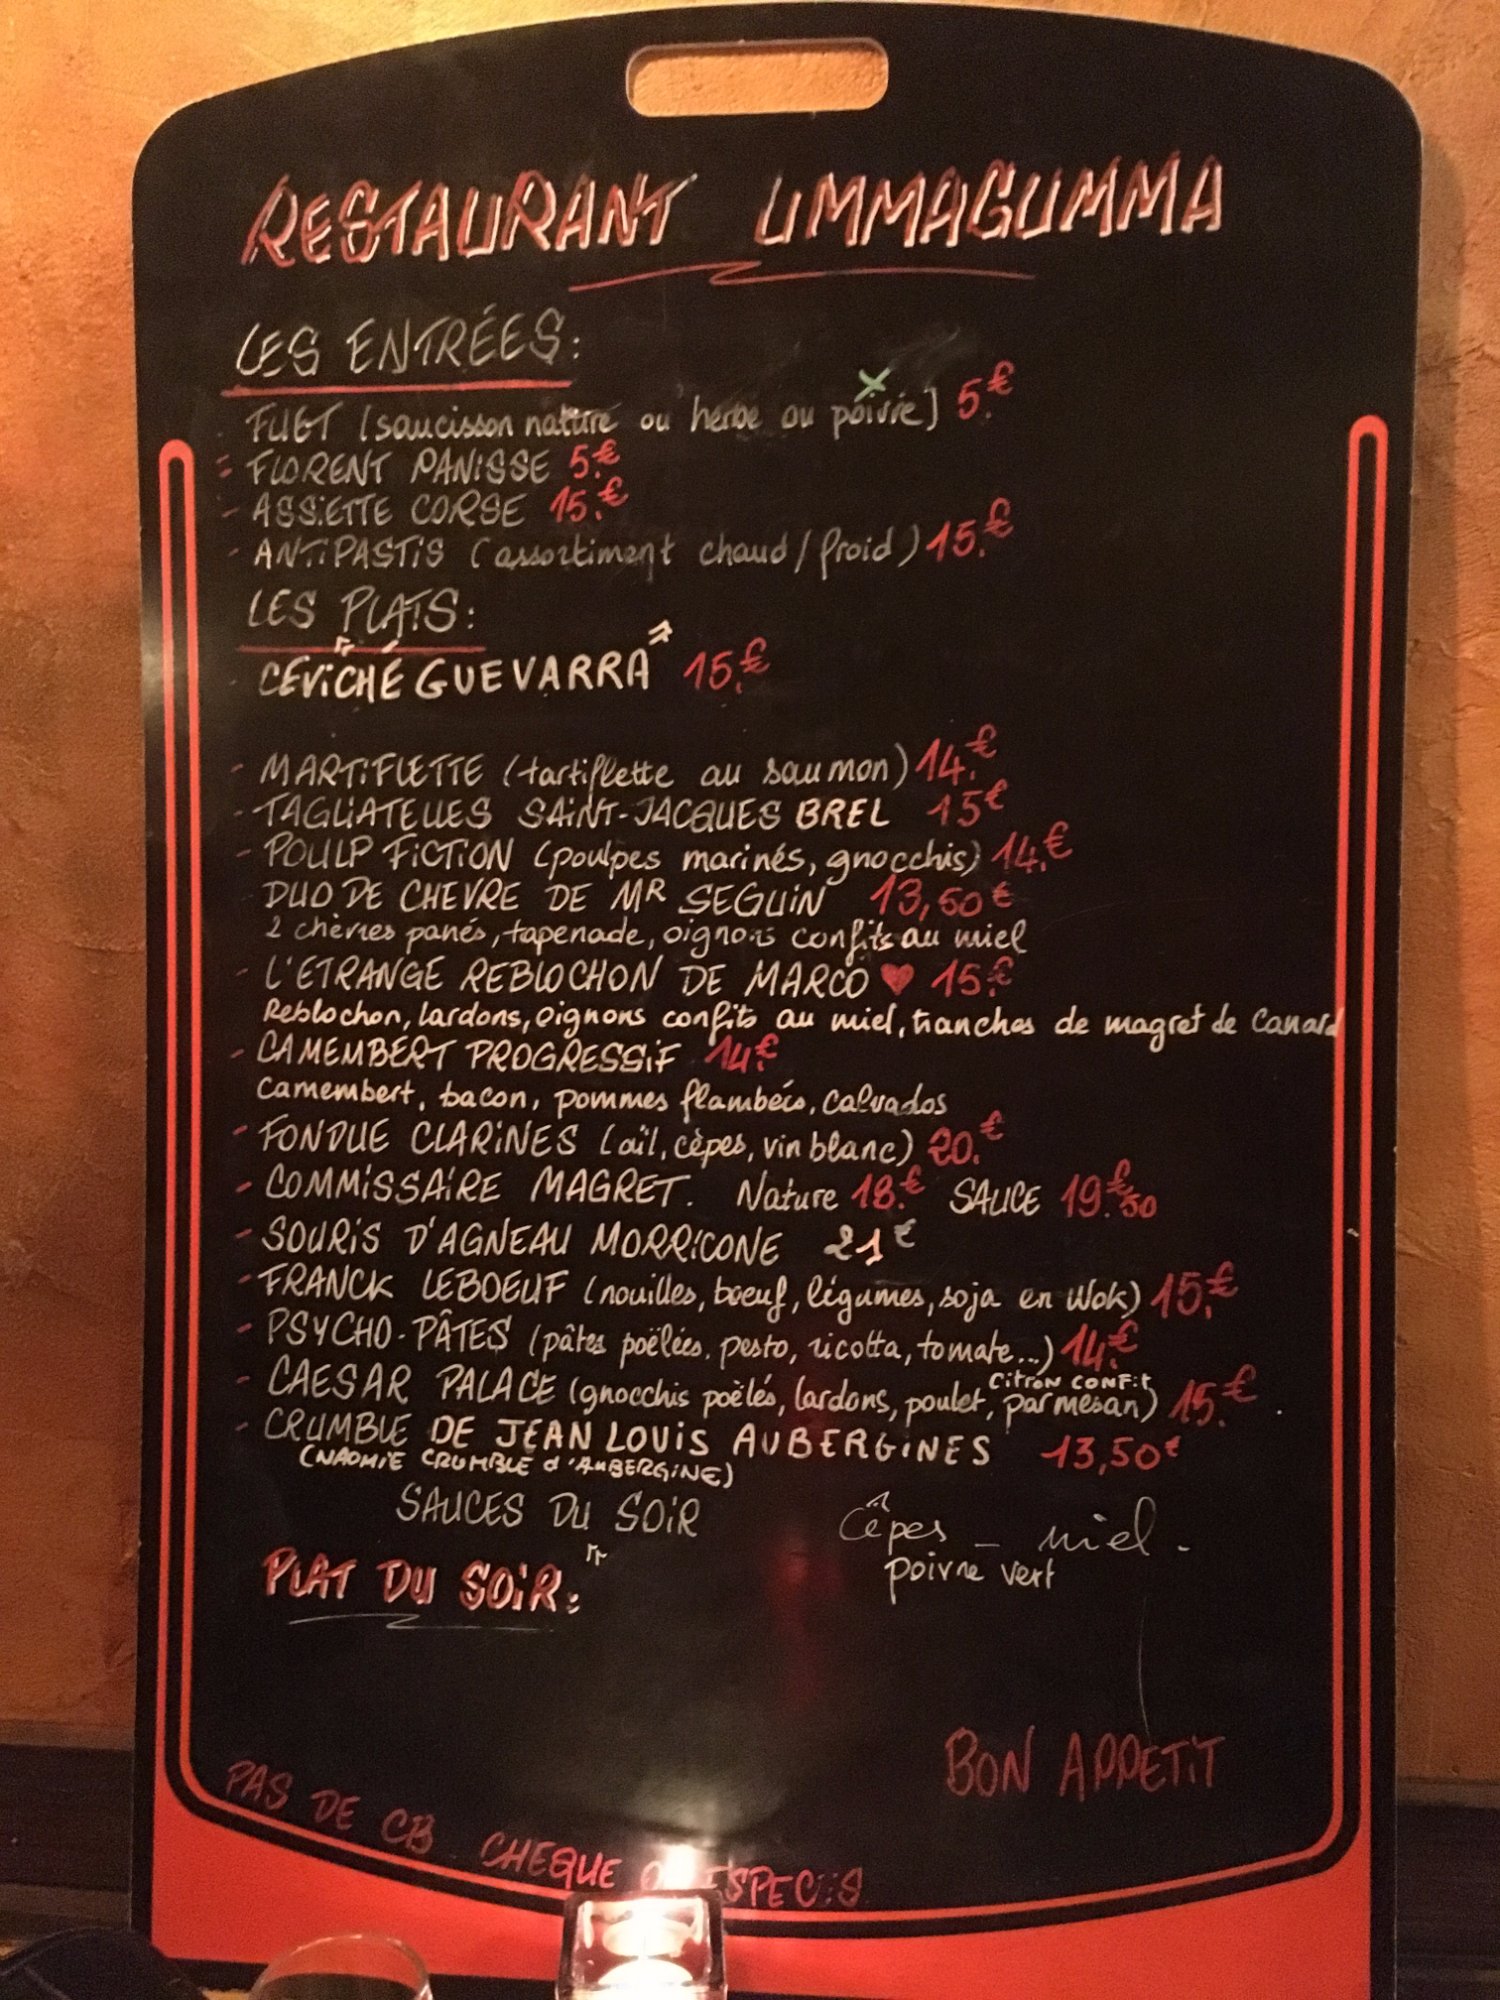 RESTAURANT UMMAGUMMA
LES ENTRÉES:
FUET (saucisson nature ou herbe ou poivre) 5.€
- FLORENT PANISSE 5.€
- ASSIETTE CORSE 15.€
- ANTIPASTIS (assortiment chaud/froid) 15.€
LES PLATS:
CEVICHÉ GUEVARRA 15.€
- MARTIFLETTE (tartiflette au saumon) 14.€
- TAGLIATELLES SAINT-JACQUES BREL 15€
- POULP FICTION (poulpes marinés, gnocchis) 14.€
DUO DE CHEVRE DE MR SEGUIN 13,50€
2 chèvres panés, tapenade, oignons confits au miel
- L'ETRANGE REBLOCHON DE MARCO ♥ 15.€
Reblochon, lardons, oignons confits au miel, tranches de magret de Canard
- CAMEMBERT PROGRESSIF 14.€
Camembert, bacon, pommes flambées, calvados
- FONDUE CLARINES (ail, cèpes, vin blanc) 20.€
- COMMISSAIRE MAGRET. Nature 18.€ SAUCE 19.€50
- SOURIS D'AGNEAU MORRICONE 21€
- FRANCK LEBOEUF (nouilles, bœuf, légumes, soja en Wok) 15.€
- PSYCHO-PÂTES (pâtes poëlées, pesto, ricotta, tomate...) 14.€
- CAESAR PALACE (gnocchis poëlés, lardons, poulet, citron confit, parmesan) 15.€
- CRUMBLE DE JEAN LOUIS AUBERGINES 13,50€
(NAOMIE CRUMBLE d'AUBERGINE)
SAUCES DU SOIR Cêpes - miel -
poivre vert
PLAT DU SOIR:
BON APPETIT
PAS DE CB CHEQUE